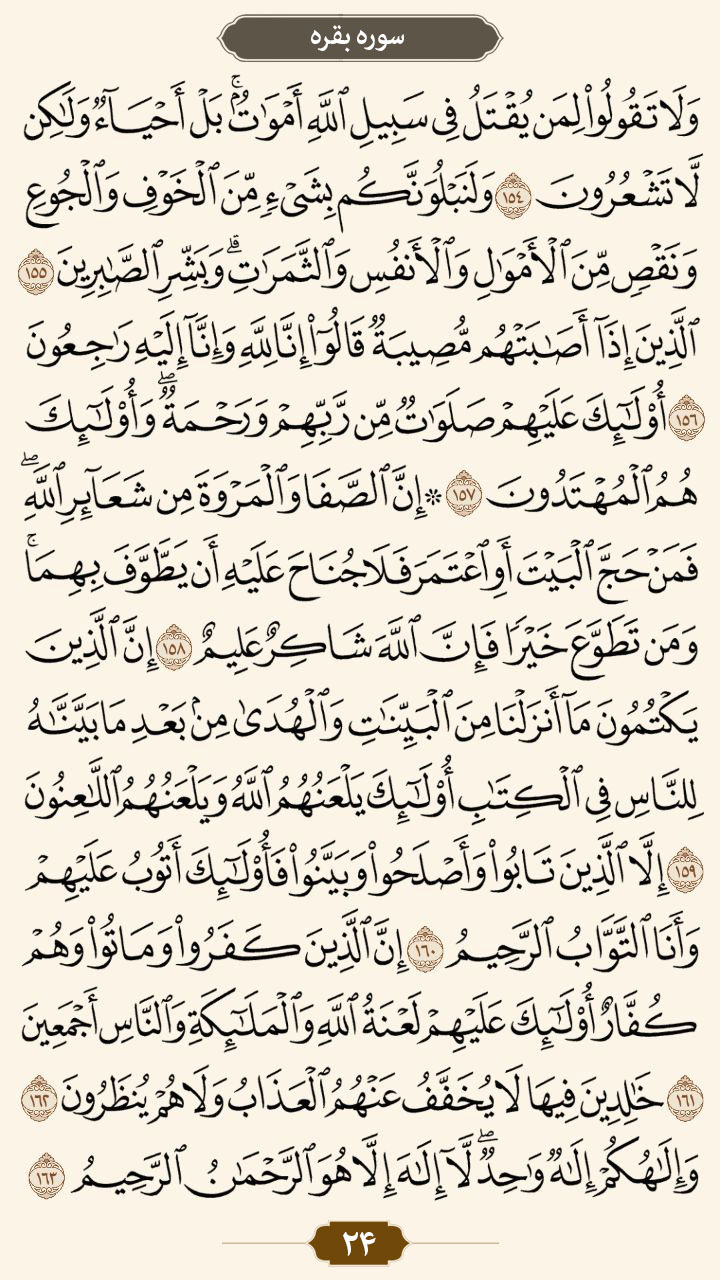 سوره بقره
وَلَا تَقُولُوا۟ لِمَن يُقْتَلُ فِى سَبِيلِ ٱللَّهِ أَمْوَٰتٌۢ ۚ بَلْ أَحْيَآءٌ وَلَـٰكِن
لَّا تَشْعُرُونَ ١٥٤ وَلَنَبْلُوَنَّكُم بِشَىْءٍ مِّنَ ٱلْخَوْفِ وَٱلْجُوعِ
وَنَقْصٍ مِّنَ ٱلْأَمْوَٰلِ وَٱلْأَنفُسِ وَٱلثَّمَرَٰتِ ۗ وَبَشِّرِ ٱلصَّـٰبِرِينَ ١٥٥
ٱلَّذِينَ إِذَآ أَصَـٰبَتْهُم مُّصِيبَةٌ قَالُوٓا۟ إِنَّا لِلَّهِ وَإِنَّآ إِلَيْهِ رَٰجِعُونَ
١٥٦ أُو۟لَـٰٓئِكَ عَلَيْهِمْ صَلَوَٰتٌ مِّن رَّبِّهِمْ وَرَحْمَةٌ ۖ وَأُو۟لَـٰٓئِكَ
هُمُ ٱلْمُهْتَدُونَ ١٥٧ ۞ إِنَّ ٱلصَّفَا وَٱلْمَرْوَةَ مِن شَعَآئِرِ ٱللَّهِ ۖ
فَمَنْ حَجَّ ٱلْبَيْتَ أَوِ ٱعْتَمَرَ فَلَا جُنَاحَ عَلَيْهِ أَن يَطَّوَّفَ بِهِمَا ۚ
وَمَن تَطَوَّعَ خَيْرًا فَإِنَّ ٱللَّهَ شَاكِرٌ عَلِيمٌ ١٥٨ إِنَّ ٱلَّذِينَ
يَكْتُمُونَ مَآ أَنزَلْنَا مِنَ ٱلْبَيِّنَـٰتِ وَٱلْهُدَىٰ مِنۢ بَعْدِ مَا بَيَّنَّـٰهُ
لِلنَّاسِ فِى ٱلْكِتَـٰبِ أُو۟لَـٰٓئِكَ يَلْعَنُهُمُ ٱللَّهُ وَيَلْعَنُهُمُ ٱللَّـٰعِنُونَ
١٥٩ إِلَّا ٱلَّذِينَ تَابُوا۟ وَأَصْلَحُوا۟ وَبَيَّنُوا۟ فَأُو۟لَـٰٓئِكَ أَتُوبُ عَلَيْهِمْ
وَأَنَا ٱلتَّوَّابُ ٱلرَّحِيمُ ١٦٠ إِنَّ ٱلَّذِينَ كَفَرُوا۟ وَمَاتُوا۟ وَهُمْ
كُفَّارٌ أُو۟لَـٰٓئِكَ عَلَيْهِمْ لَعْنَةُ ٱللَّهِ وَٱلْمَلَـٰٓئِكَةِ وَٱلنَّاسِ أَجْمَعِينَ
١٦١ خَـٰلِدِينَ فِيهَا لَا يُخَفَّفُ عَنْهُمُ ٱلْعَذَابُ وَلَا هُمْ يُنظَرُونَ ١٦٢
وَإِلَـٰهُكُمْ إِلَـٰهٌ وَٰحِدٌ ۖ لَّآ إِلَـٰهَ إِلَّا هُوَ ٱلرَّحْمَـٰنُ ٱلرَّحِيمُ ١٦٣
۲۴